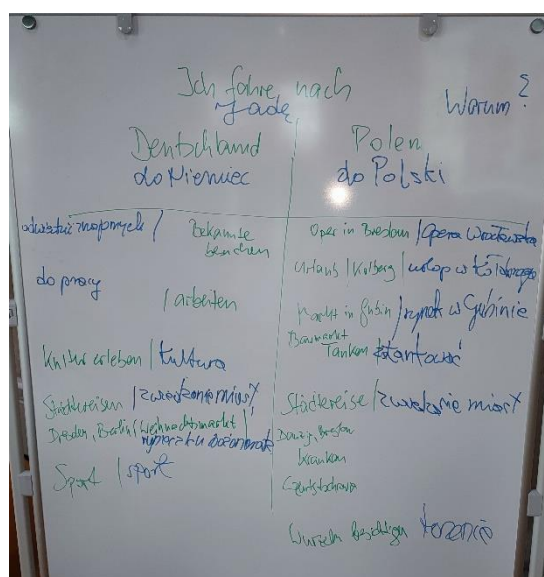 Ich fahre nach
Jadę
Warum?
Deutschland
do Niemiec
Polen
do Polski
odwiedzić znajomych / Bekannte besuchen
do pracy / arbeiten
Kultur erleben / kultura
Städtereisen / zwiedzanie miast
Dresden, Berlin / Weihnachtsmarkt /
Sport / sport
Oper in Breslau / Opera Wrocławska
Urlaub / Kolberg / urlop w Kołobrzegu
Markt in Gubin / rynek w Gubinie
Baumarkt
Tanken
Städtereise / zwiedzanie miast
Danzig, Breslau
Krakau
Wurzeln besichtigen